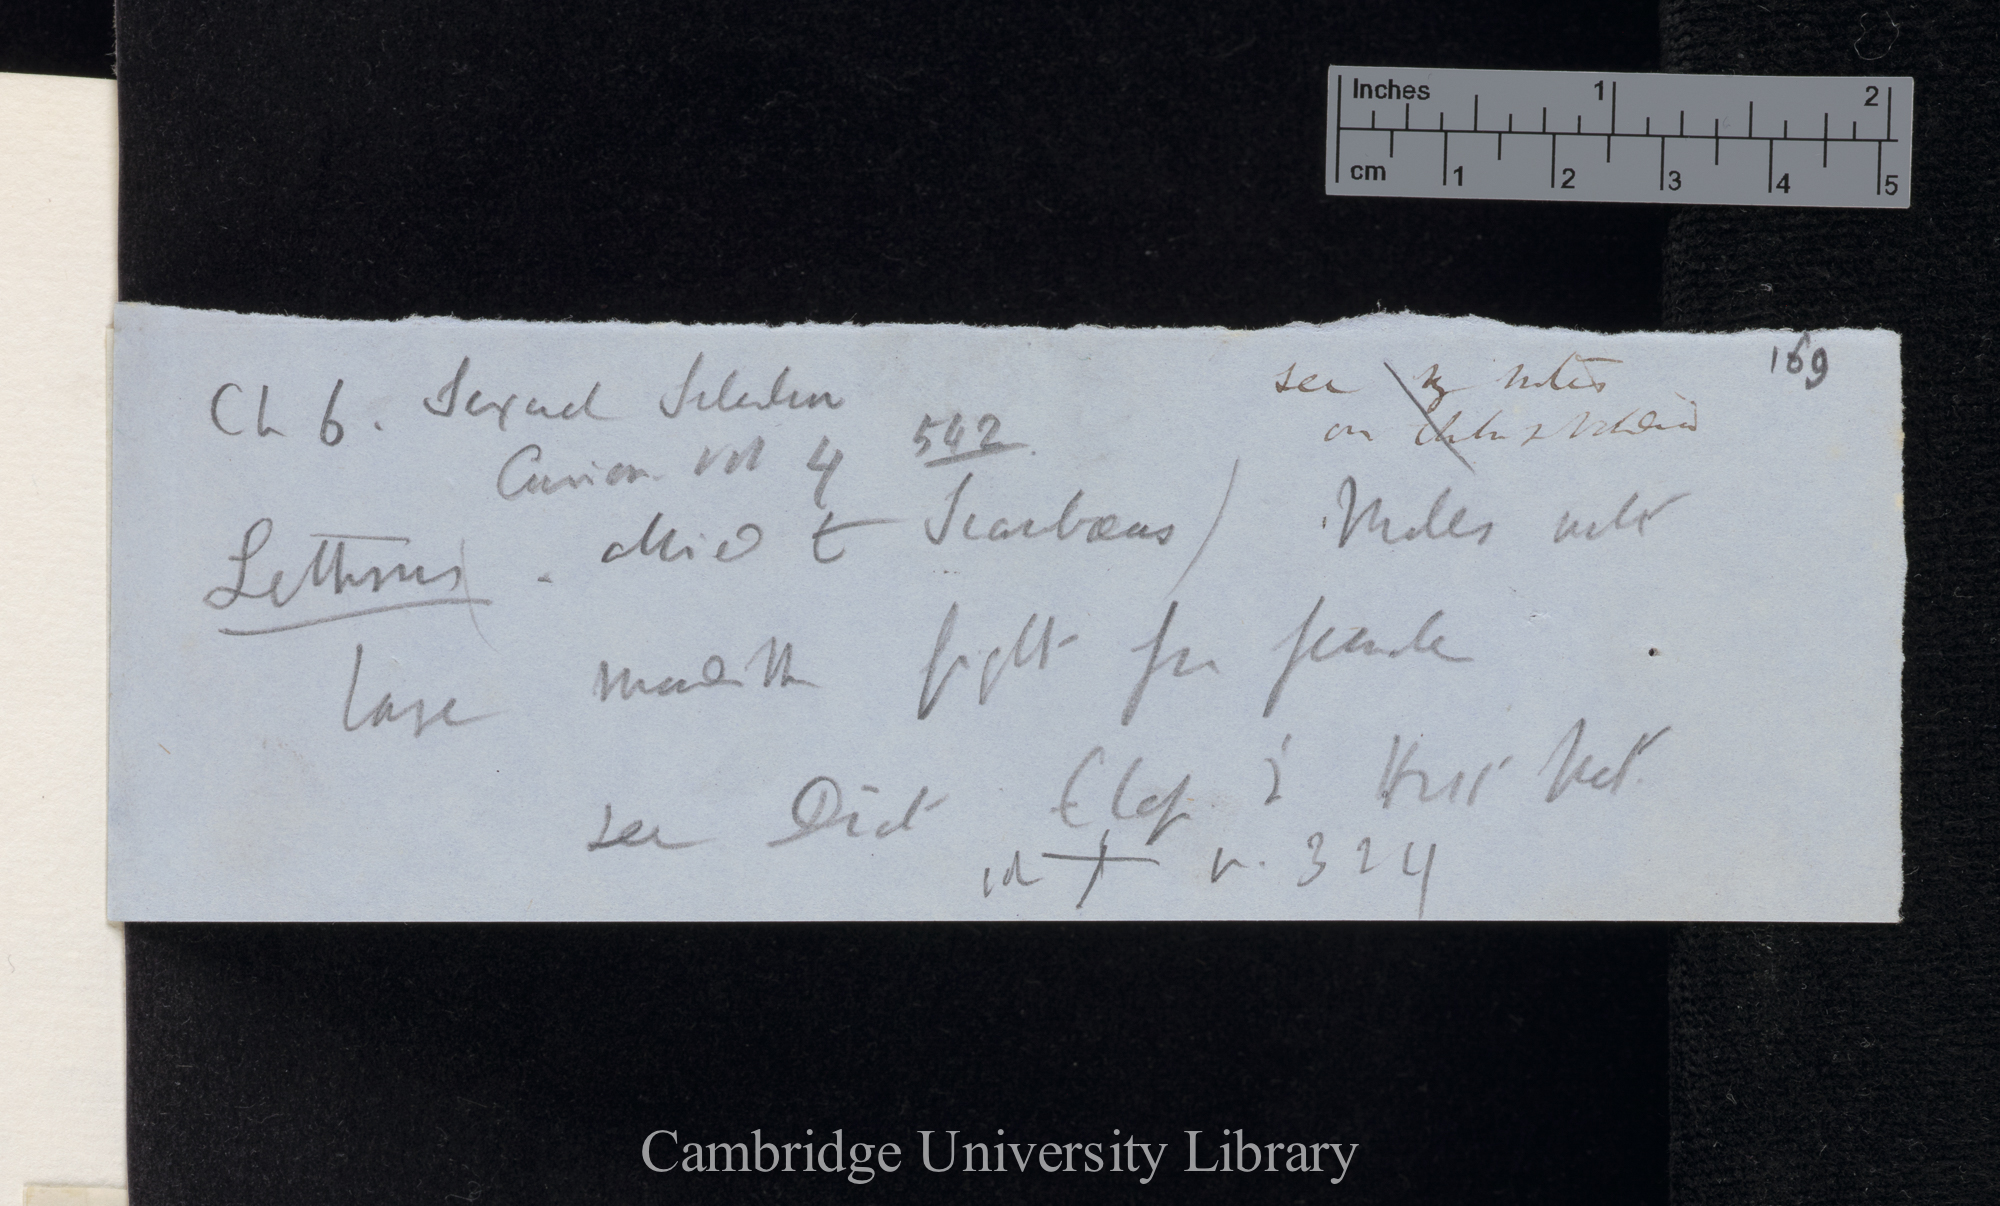 Inches 1 2
cm 1 2 3 4 5
169
see my notes
on
Ch 6. Sexual Selection
Cuvier. vol 4 542.
Lethrus (. allied to Scarabæus) Males with
large mandible fight for female
see Dict Class. d' Hist Nat.
p. 324
Cambridge University Library